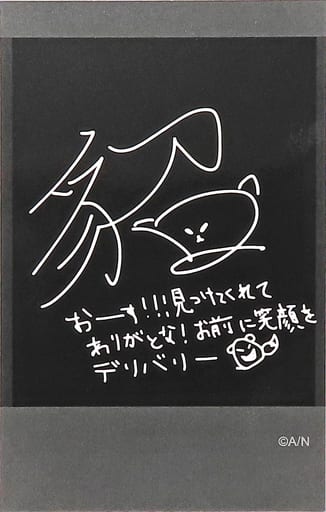 貂
おーす!!!見つけてくれて
ありがとな!お前に笑顔を
デリバリー
©A/N